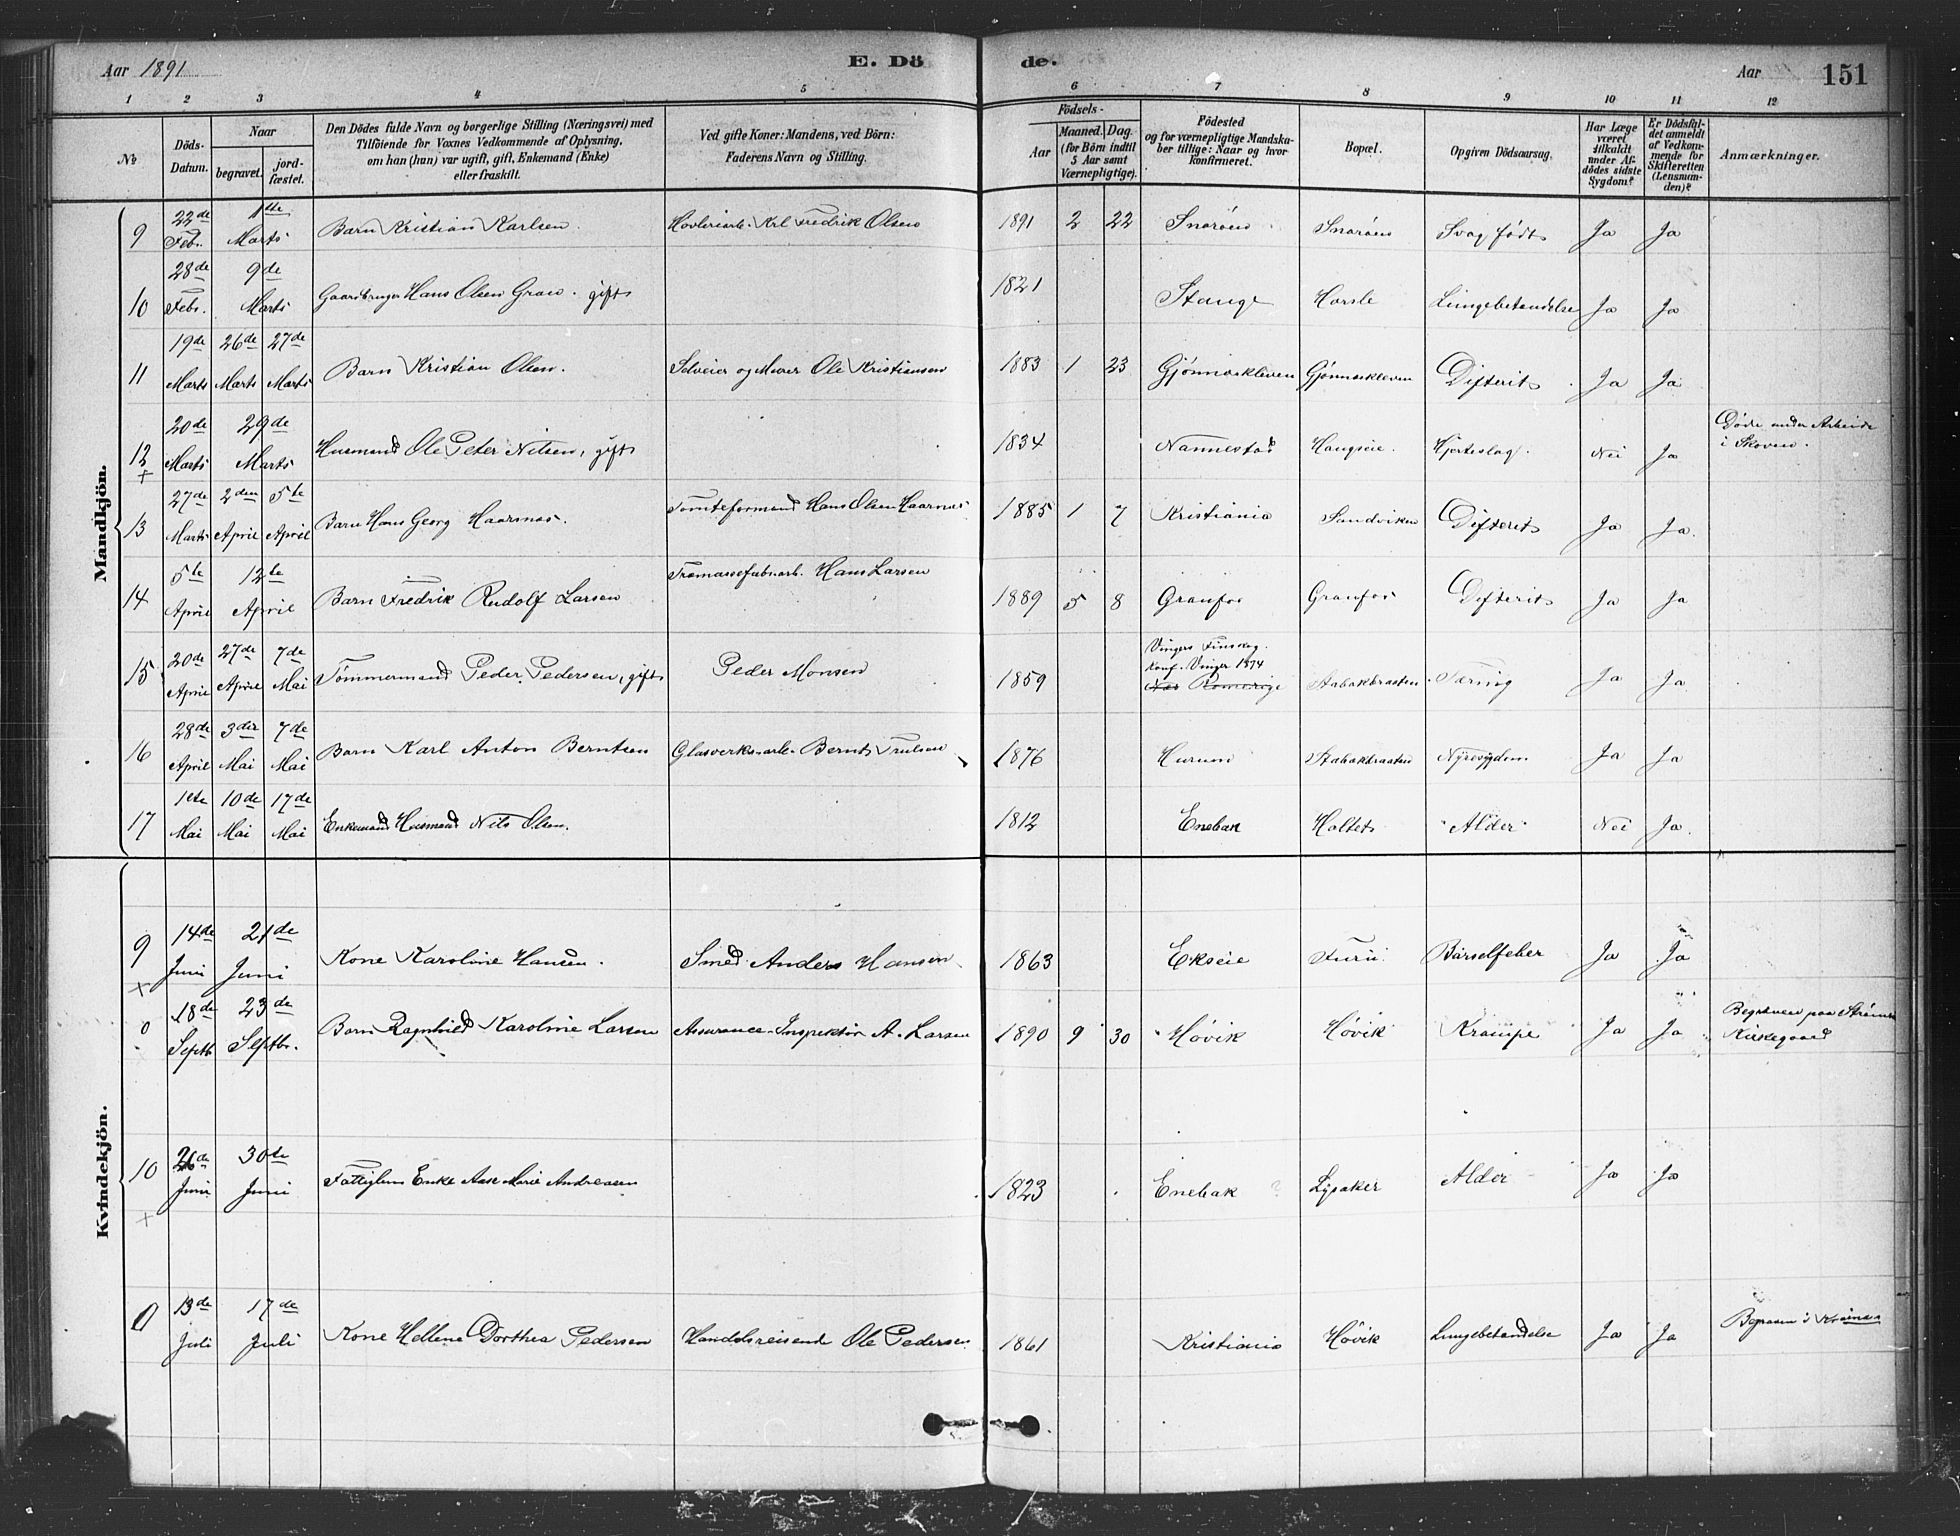 Aar 1891
E. Dö
de.
Aar 151
1 2 3 4 5 6 7 8 9 10 11 12
№
Döds-Datum.
Naar
begravet.
jord-fæstet.
Den Dödes fulde Navn og borgerlige Stilling (Næringsvei) med
Tilföiende for Voxnes Vedkommende af Oplysning,
om han (hun) var ugift, gift, Enkemand (Enke)
eller fraskilt.
Ved gifte Koner: Mandens, ved Börn:
Faderens Navn og Stilling.
Födsels-
Aar
Maaned. Dag.
(for Börn indtil
5 Aar samt
Værnepligtige).
Födested
og for værnepligtige Mandska-
ber tillige: Naar og hvor
konfirmeret.
Bopæl.
Opgiven Dödsaarsag.
Har Læge
været
tilkaldt
under Af-
dödes sidste
Sygdom?
Er Dödsfal-
det anmeldt
af Vedkom-
mende for
Skifteretten
(Lensman-
den)?
Anmærkninger.
Mandkjön.
9 22de Febr. 1ste Marts Barn Kristian Karlsen. Karl Fredrik Olsen 1891 2 22 Snarøen Snarøen Svag født Ja Ja
10 28de Febr. 9de Marts Gaardbruger Hans Olsen Grav. gift 1821 Stange Harsle Lungebetændelse Ja Ja
11 19de Marts 26de Marts 27de Marts Barn Kristian Olsen. Selveier og Murer Ole Kristiansen 1883 1 23 Gjønneskleven Gjønneskleven Difterit Ja Ja
12 20de Marts 29de Marts Husmand Ole Peter Nilsen, gift 1834 Nannestad Haugseie. Hjerteslag. Nei Ja Døde under Arbeide
i Skoven.
13 27de Marts 2den April 5te April Barn Hans Georg Haarnæs. Tomteformand Hans Olsen Haarnæs 1885 1 7 Kristiania Sandviken Difterit Ja Ja.
14 5te April 12te April Barn Fredrik Rudolf Larsen Træmassefabrarb. Hans Larsen 1889 5 8 Granfos Granfos Difterit Ja Ja
15 20de April 27de April 7de Mai Tømmermand Peder Pedersen, gift Peder Monsen 1859 Vingers Finskog.
Konf. Vinger 1874
Næs Romerige Stabækbraaten Tæring Ja Ja
16 28de April 3die Mai 7de Mai Barn Karl Anton Berntsen Glasverksarb. Bernt Trulsen 1876 Hurum Stabækbraaten Nyresygdom Ja Ja
17 1ste Mai 10de Mai 17de Mai Enkemand Husmand Nils Olsen. 1812 Enebak Holtet Alder Nei Ja.
Kvindekjön.
9 14de Juni 21de Juni Kone Karoline Hansen. Smed Anders Hansen. 1863 Ekseie Furu Barselfeber Ja Ja
0 18de Septb. 23de Septbr. Barn Ragnhild Karoline Larsen Assurance-Inspektør A. Larsen 1890 9 30 Høvik Høvik Krampe Ja Ja Begraven paa
Kirkegaard
10 26de Juni 30te Juni Fattiglem Enke Aase Marie Andreasen 1823 Enebak ? Lysaker Alder Ja Ja
0 13de Juli 17de Juli Kone Hellene Dorthea Pedersen Handelsreisende Ole Pedersen 1861 Kristiania Høvik Lungebetændelse Ja Ja Begraven i